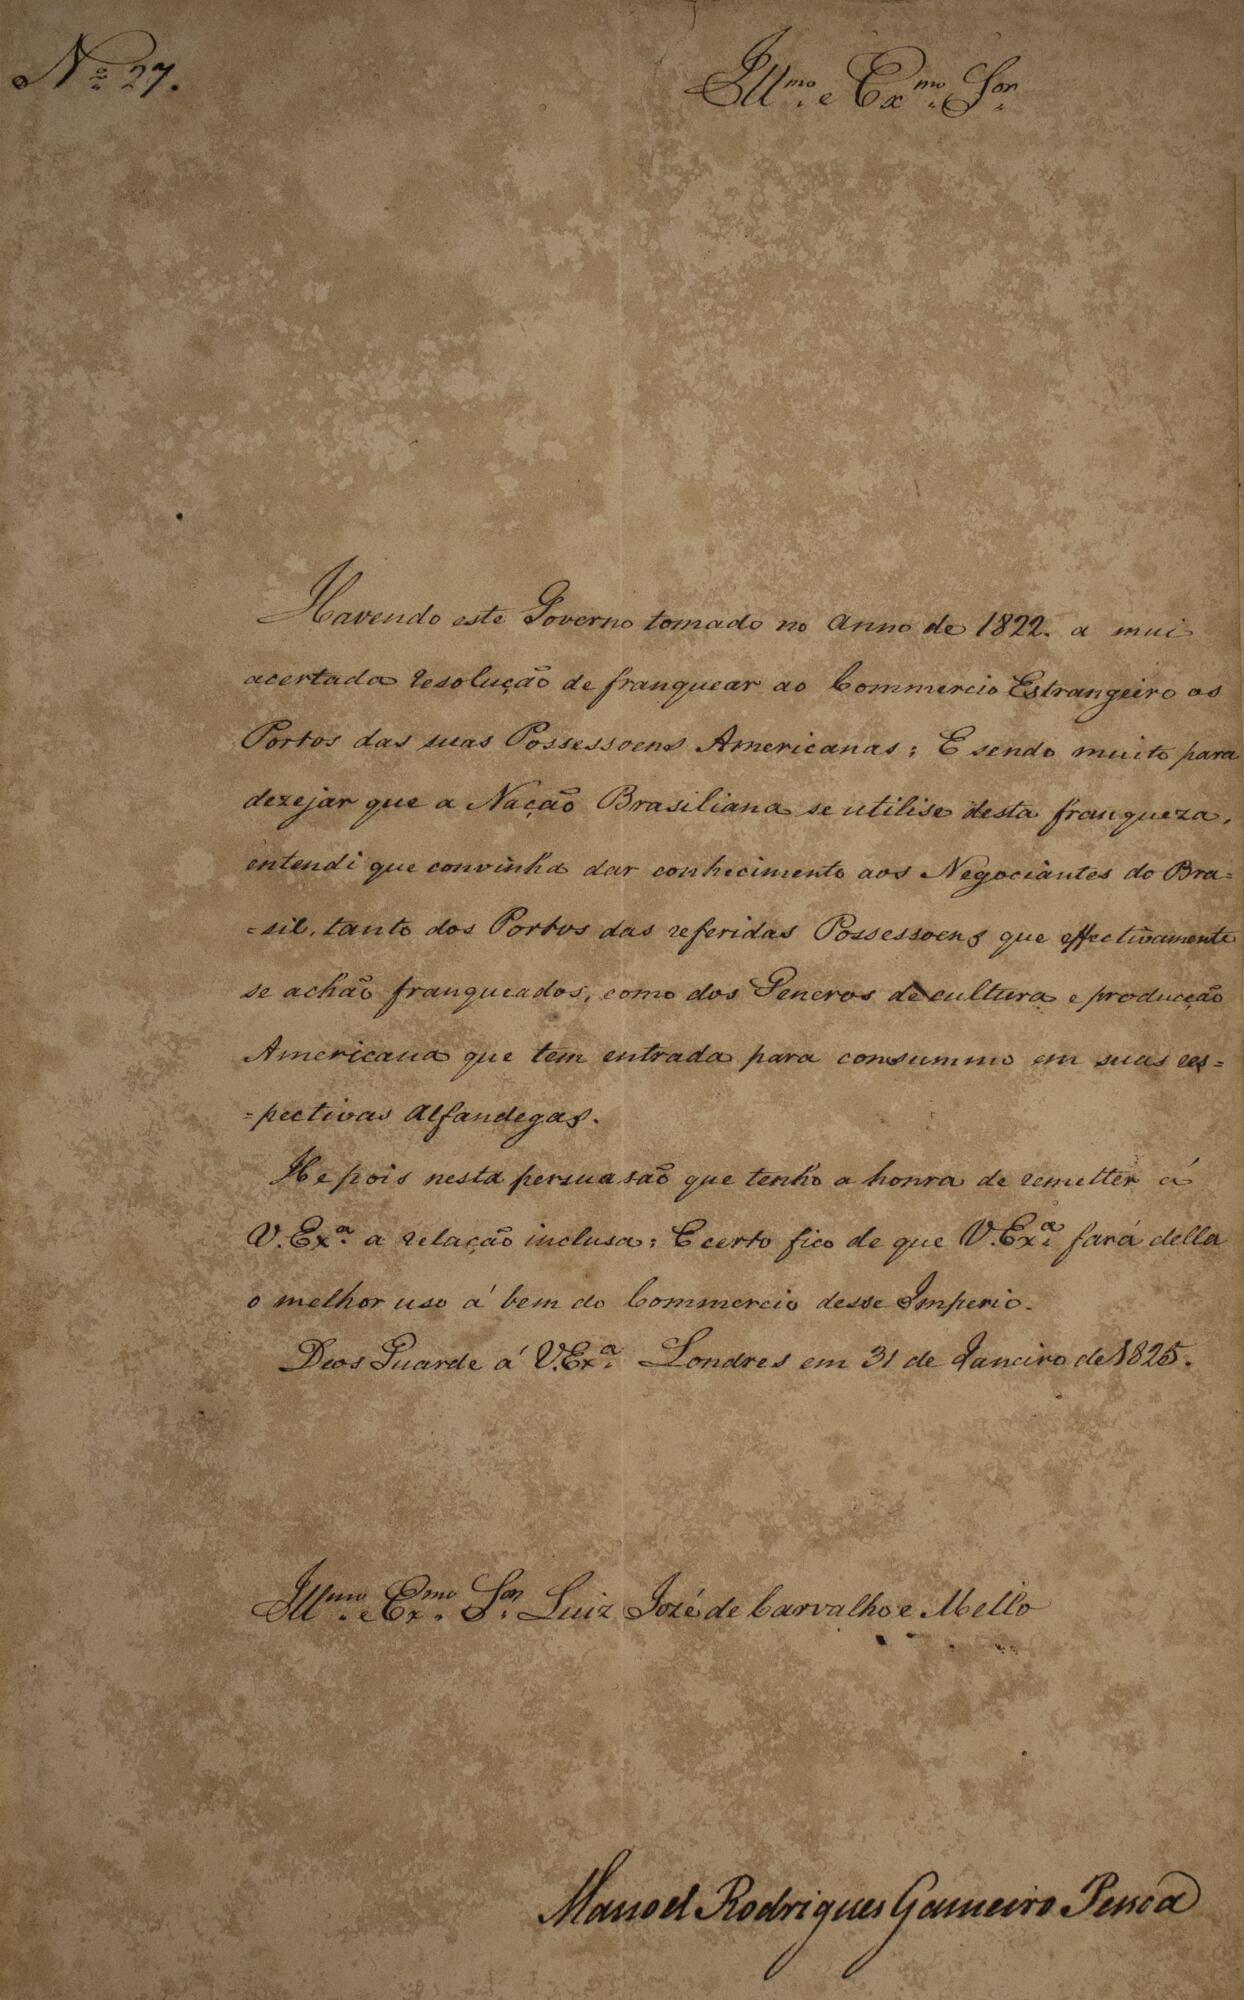 Nº 27.
Illmo. e Exmo. Sor.
Havendo este Governo tomado no anno de 1822. a mui
acertada resolução de franquear ao Commercio Estrangeiro os
Portos das suas Possessoens Americanas; E sendo muito para
dezejar que a Nação Brasiliana se utilise desta franqueza,
entendi que convinha dar conhecimento aos Negociantes do Bra=
=sil, tanto dos Portos das referidas Possessoens que effectivamente
se achão franqueados, como dos Generos de cultura e producção
Americana que tem entrada para consummo em suas res=
=pectivas Alfandegas.
He pois nesta persuasão que tenho a honra de remetter á
V.Exa. a relação inclusa; E certo fico de que V.Exa. fará della
o melhor uso á bem do Commercio desse Imperio.
Deos Guarde á V.Exa. Londres em 31 de Janeiro de 1825.
Illmo. e Exmo. Sor. Luiz José de Carvalho e Mello
Manoel Rodrigues Gameiro Pessoa